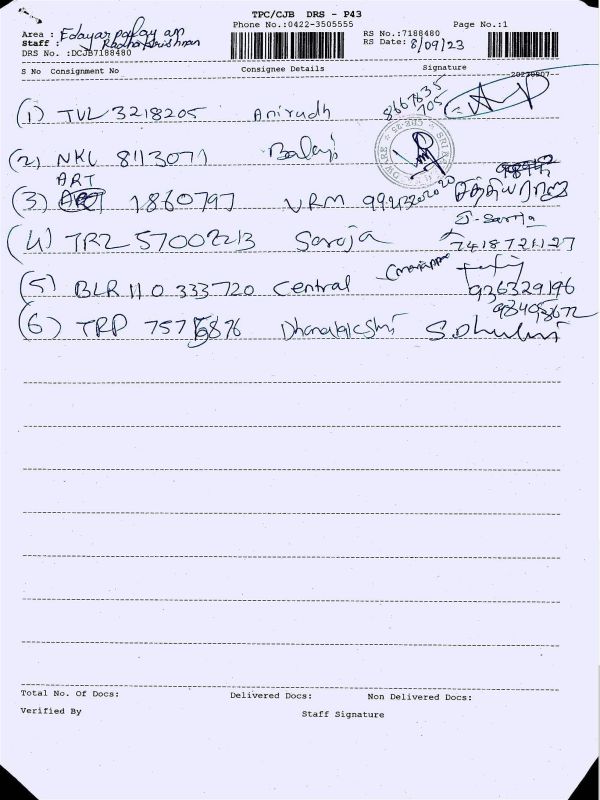 TPC/CJB DRS - P43
Phone No.:0422-3505555 Page No.:1
Area : Edayarpalayam
Staff : Radhakrishnan
RS No.:7188480
RS Date: 8/09/23
DRS No. :DCJB7188480
S No Consignment No Consignee Details Signature
(1) TVL 3218205 Anirudh
(2) NKL 8113071 Balaji
ART
(3) 1860797 VRM
J. Saroja
(4) TRZ 57002213 Saroja 7418721127
(5) BLR 110 333720 Central 936329196
(6) TRP Dhanalakshmi
Total No. Of Docs: Delivered Docs: Non Delivered Docs:
Verified By Staff Signature